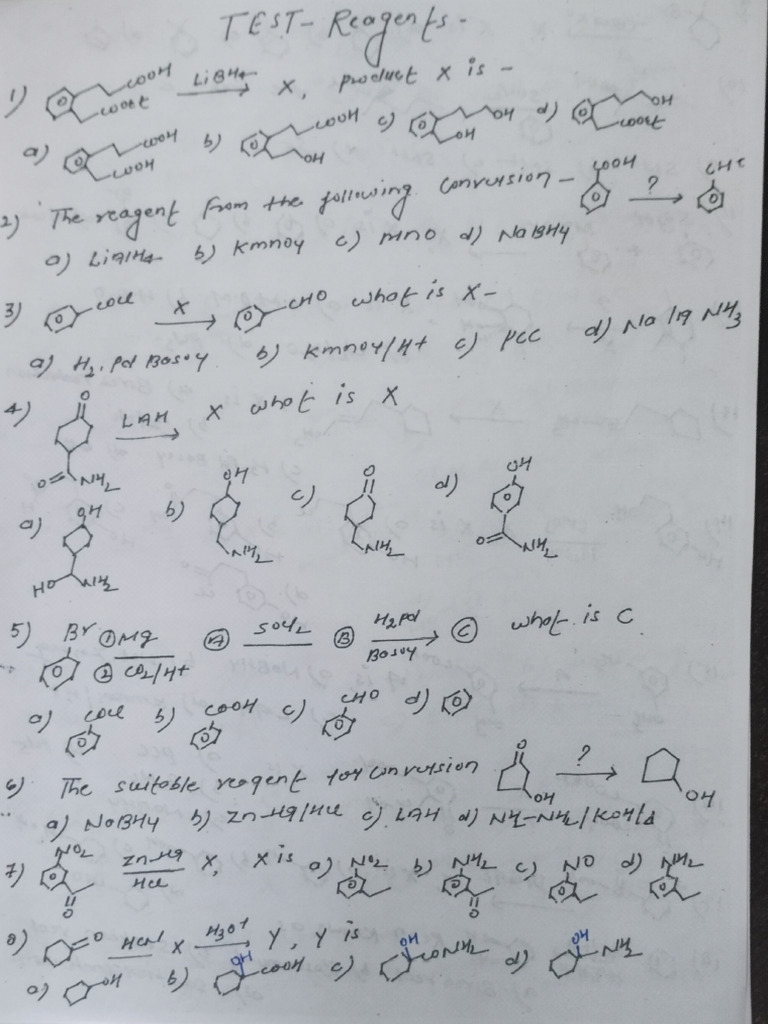 TEST- Reagents-
1) COOH COOEt LiBH4 X, product X is -
a) COOH COOH b) COOH OH c) OH OH d) OH COOEt
2) The reagent from the following conversion - COOH ?
a) LiAlH4 b) Kmno4 c) MnO d) NaBH4
3) COCl X CHO what is X-
a) H2, Pd BaSO4 b) Kmno4/H+ c) PCC d) Na/lq NH3
4) O O NH2 LAH X what is X
a) OH HO NH2 b) OH NH2 c) O NH2 d) OH O NH2
5) Br ① Mg ② CO2/H+ Ⓐ SOCl2 Ⓑ H2Pd BaSO4 Ⓒ what is C
a) COCl b) COOH c) CHO d)
6) The suitable reagent for conversion O OH ? OH
a) NaBH4 b) Zn-Hg/HCl c) LAH d) NH2-NH2/KOH/Δ
7) NO2 O Zn-Hg HCl X, X is a) NO2 b) NH2 O c) NO d) NH2
8) O HCN X H3O+ Y, Y is
a) OH b) OH COOH c) OH CONH2 d) OH NH2